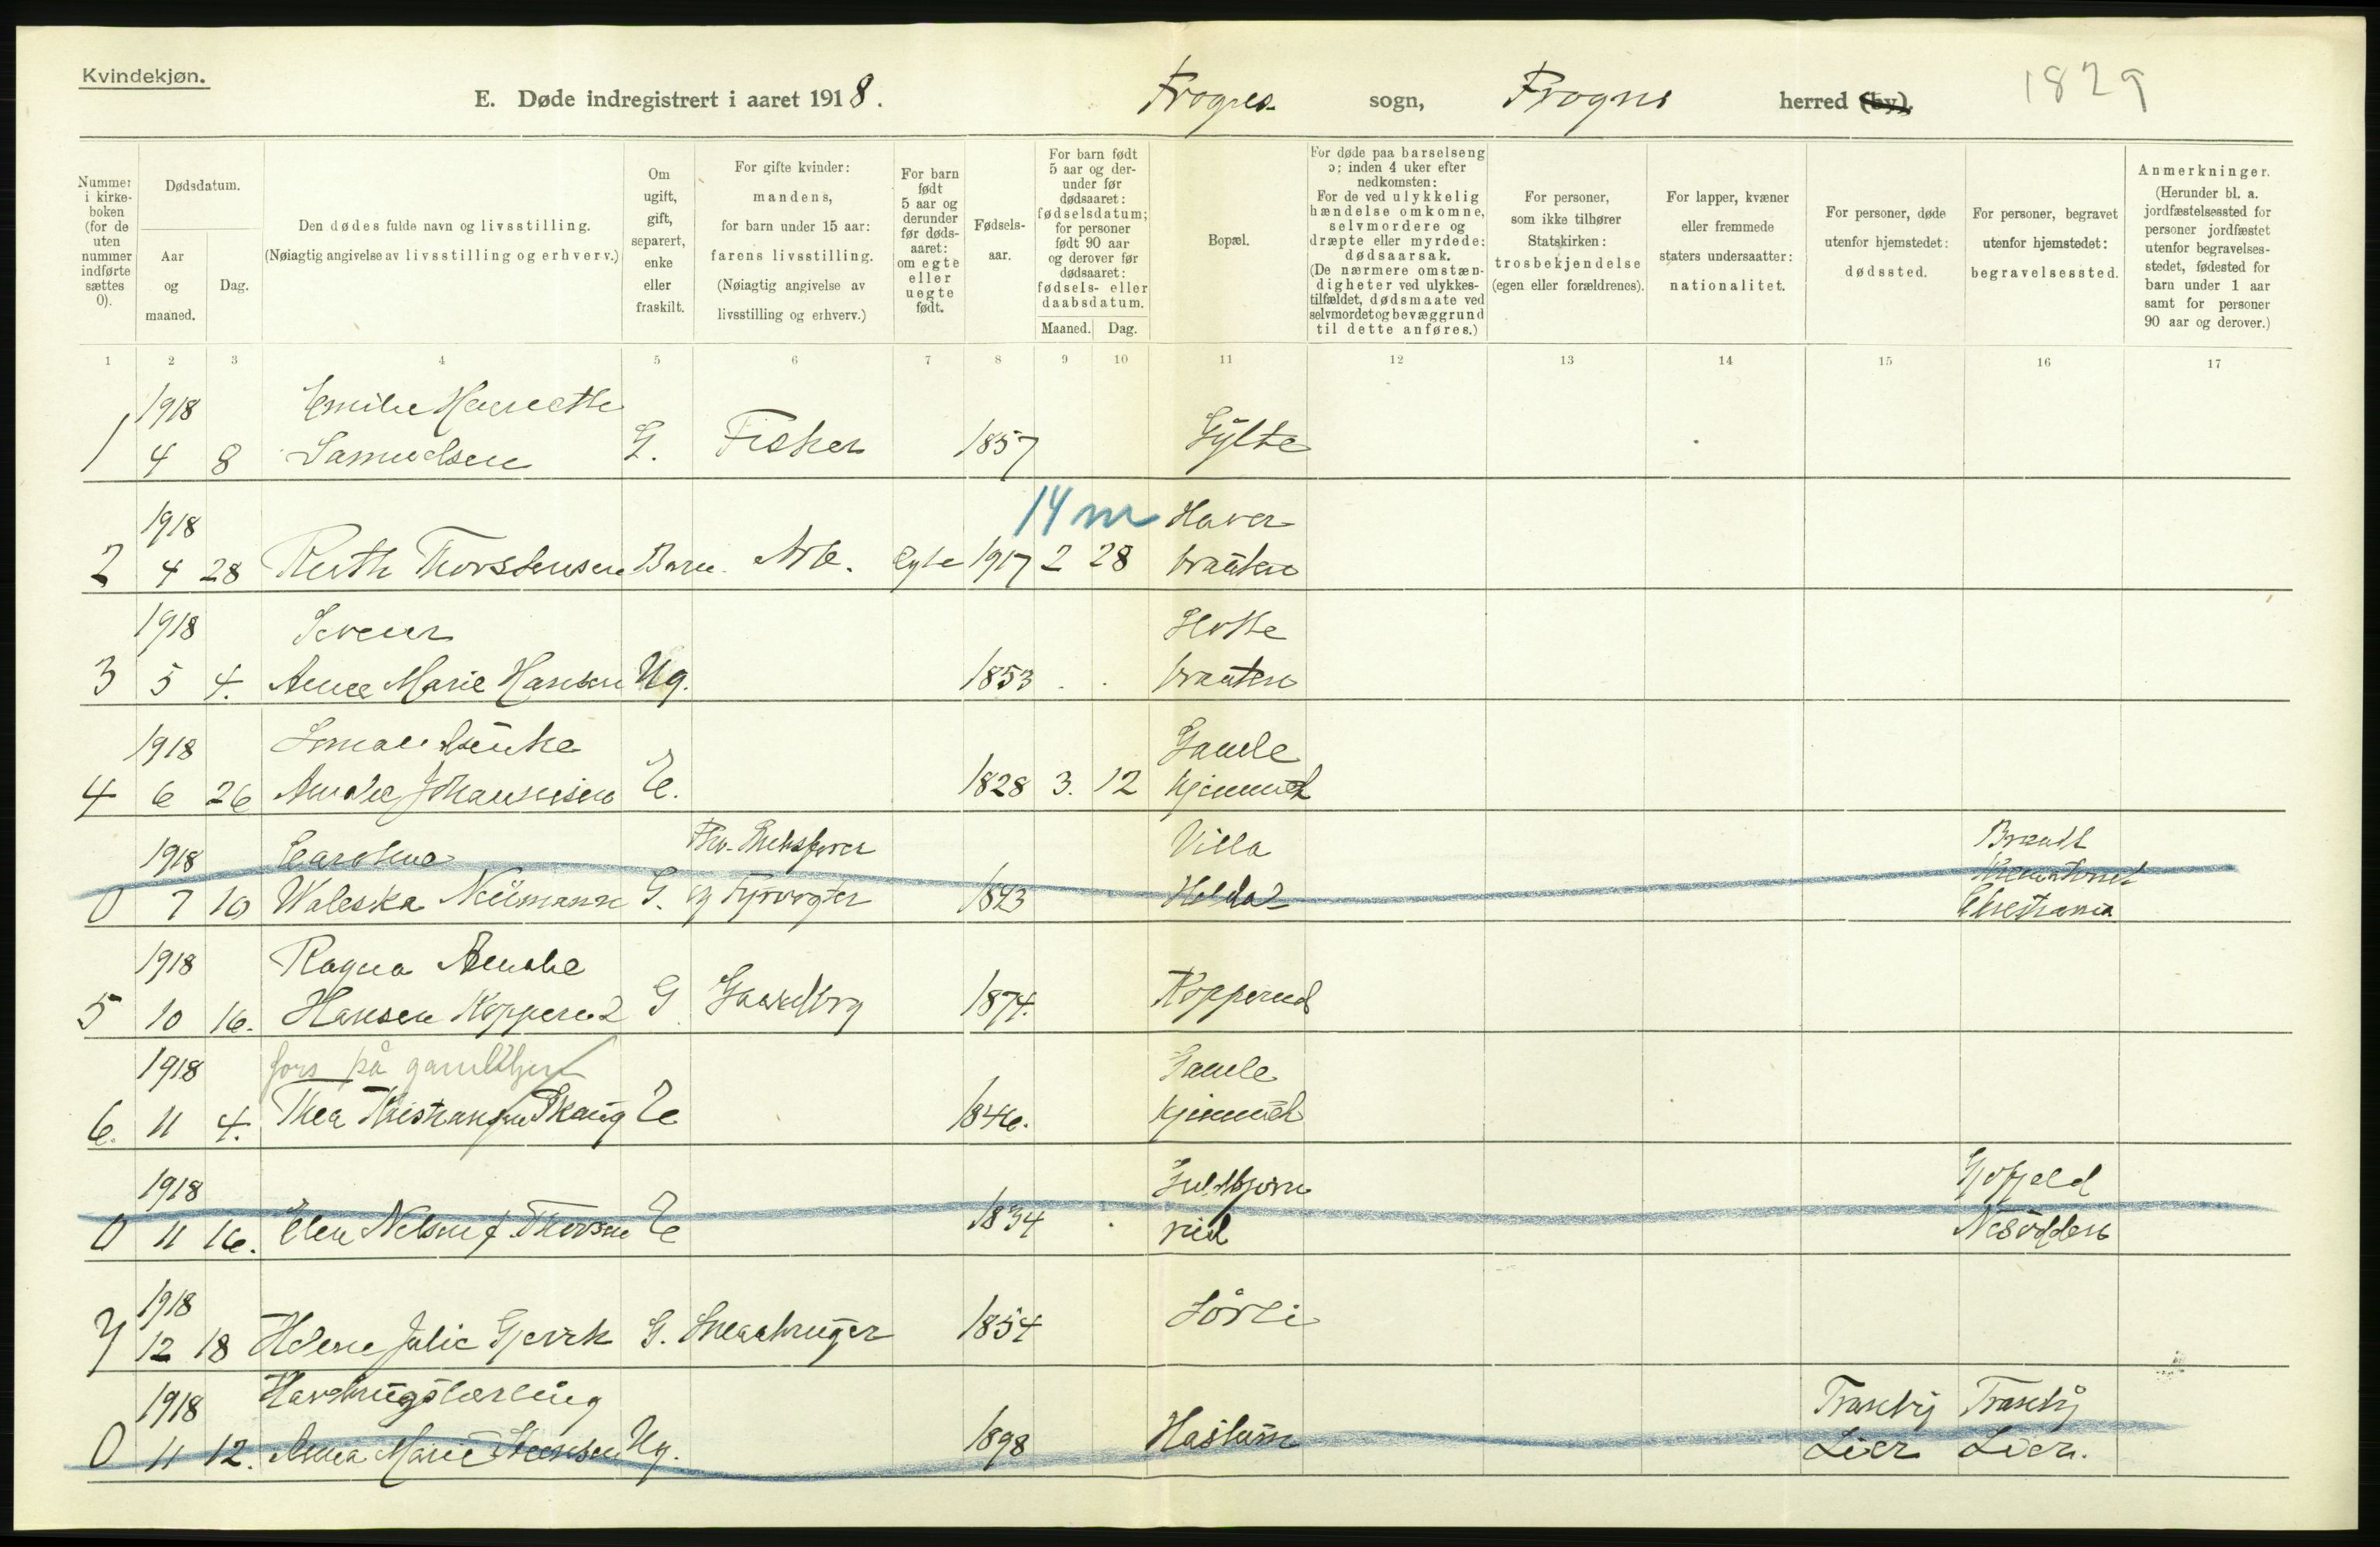 Kvindekjøn.
E. Døde indregistrert i aaret 1918. Frogns sogn, Frogns herred (by). 1829
Nummer i kirkeboken (for de uten nummer indførte sættes 0).
Dødsdatum.
Aar og maaned.
Dag.
Den dødes fulde navn og livsstilling.
(Nøiagtig angivelse av livsstilling og erhverv.)
Om ugift, gift, separert, enke eller fraskilt.
For gifte kvinder: mandens, for barn under 15 aar: farens livsstilling. (Nøiagtig angivelse av livsstilling og erhverv.)
For barn født 5 aar og derunder før dødsaaret: om egte eller uegte født.
Fødselsaar.
For barn født 5 aar og derunder før dødsaaret: fødselsdatum; for personer født 90 aar og derover før dødsaaret: fødsels- eller daabsdatum.
Maaned. Dag.
Bopæl.
For døde paa barselseng ɔ: inden 4 uker efter nedkomsten: For de ved ulykkelig hændelse omkomne, selvmordere og dræpte eller myrdede: dødsaarsak. (De nærmere omstændigheter ved ulykkestilfældet, dødsmaate ved selvmordet og bevæggrund til dette anføres.)
For personer, som ikke tilhører Statskirken: trosbekjendelse (egen eller forældrenes).
For lapper, kvæner eller fremmede staters undersaatter: nationalitet.
For personer, døde utenfor hjemstedet: dødssted.
For personer, begravet utenfor hjemstedet: begravelsessted.
Anmerkninger. (Herunder bl. a. jordfæstelsessted for personer jordfæstet utenfor begravelsesstedet, fødested for barn under 1 aar samt for personer 90 aar og derover.)
1 2 3 4 5 6 7 8 9 10 11 12 13 14 15 16 17
1918 Emilie
1 4 8 Samuelsen G. Fisker 1857 Gylte
1918 14 m Haver
2 4 28 Ruth Thorstensen Barn Arb. egte 1917 2 28 braaten
1918
3 5 4. Anne Marie Hansen Ug. 1853 braaten
1918 Gamle
4 6 26 Amalie E. 1828 3. 12 hjemmet
1918 Caroline Villa Brændt
0 7 10 Waleska Neumann G. og Fyrvogter Krematoriet
Christiania
1918 Ragna Amalie
5 10 16. Hansen Kopperud G Gaardbrg 1874. Kopperud
1918 fors på gamlehjem Gamle
6. 11 4. Thea Kristiansen Skaug E 1846. hjemmet
1918 Gjøfjeld
0 11 16. Elen E 1834 rud Nesodden
1918
7 12 18 Helene Julie Gjervik G. Smaabruger 1854 Sørli
1918 Havebrugslærling Tranby Tranby
0 11 12. Anna Marie Ug. 1898 Haslum Lier Lier.